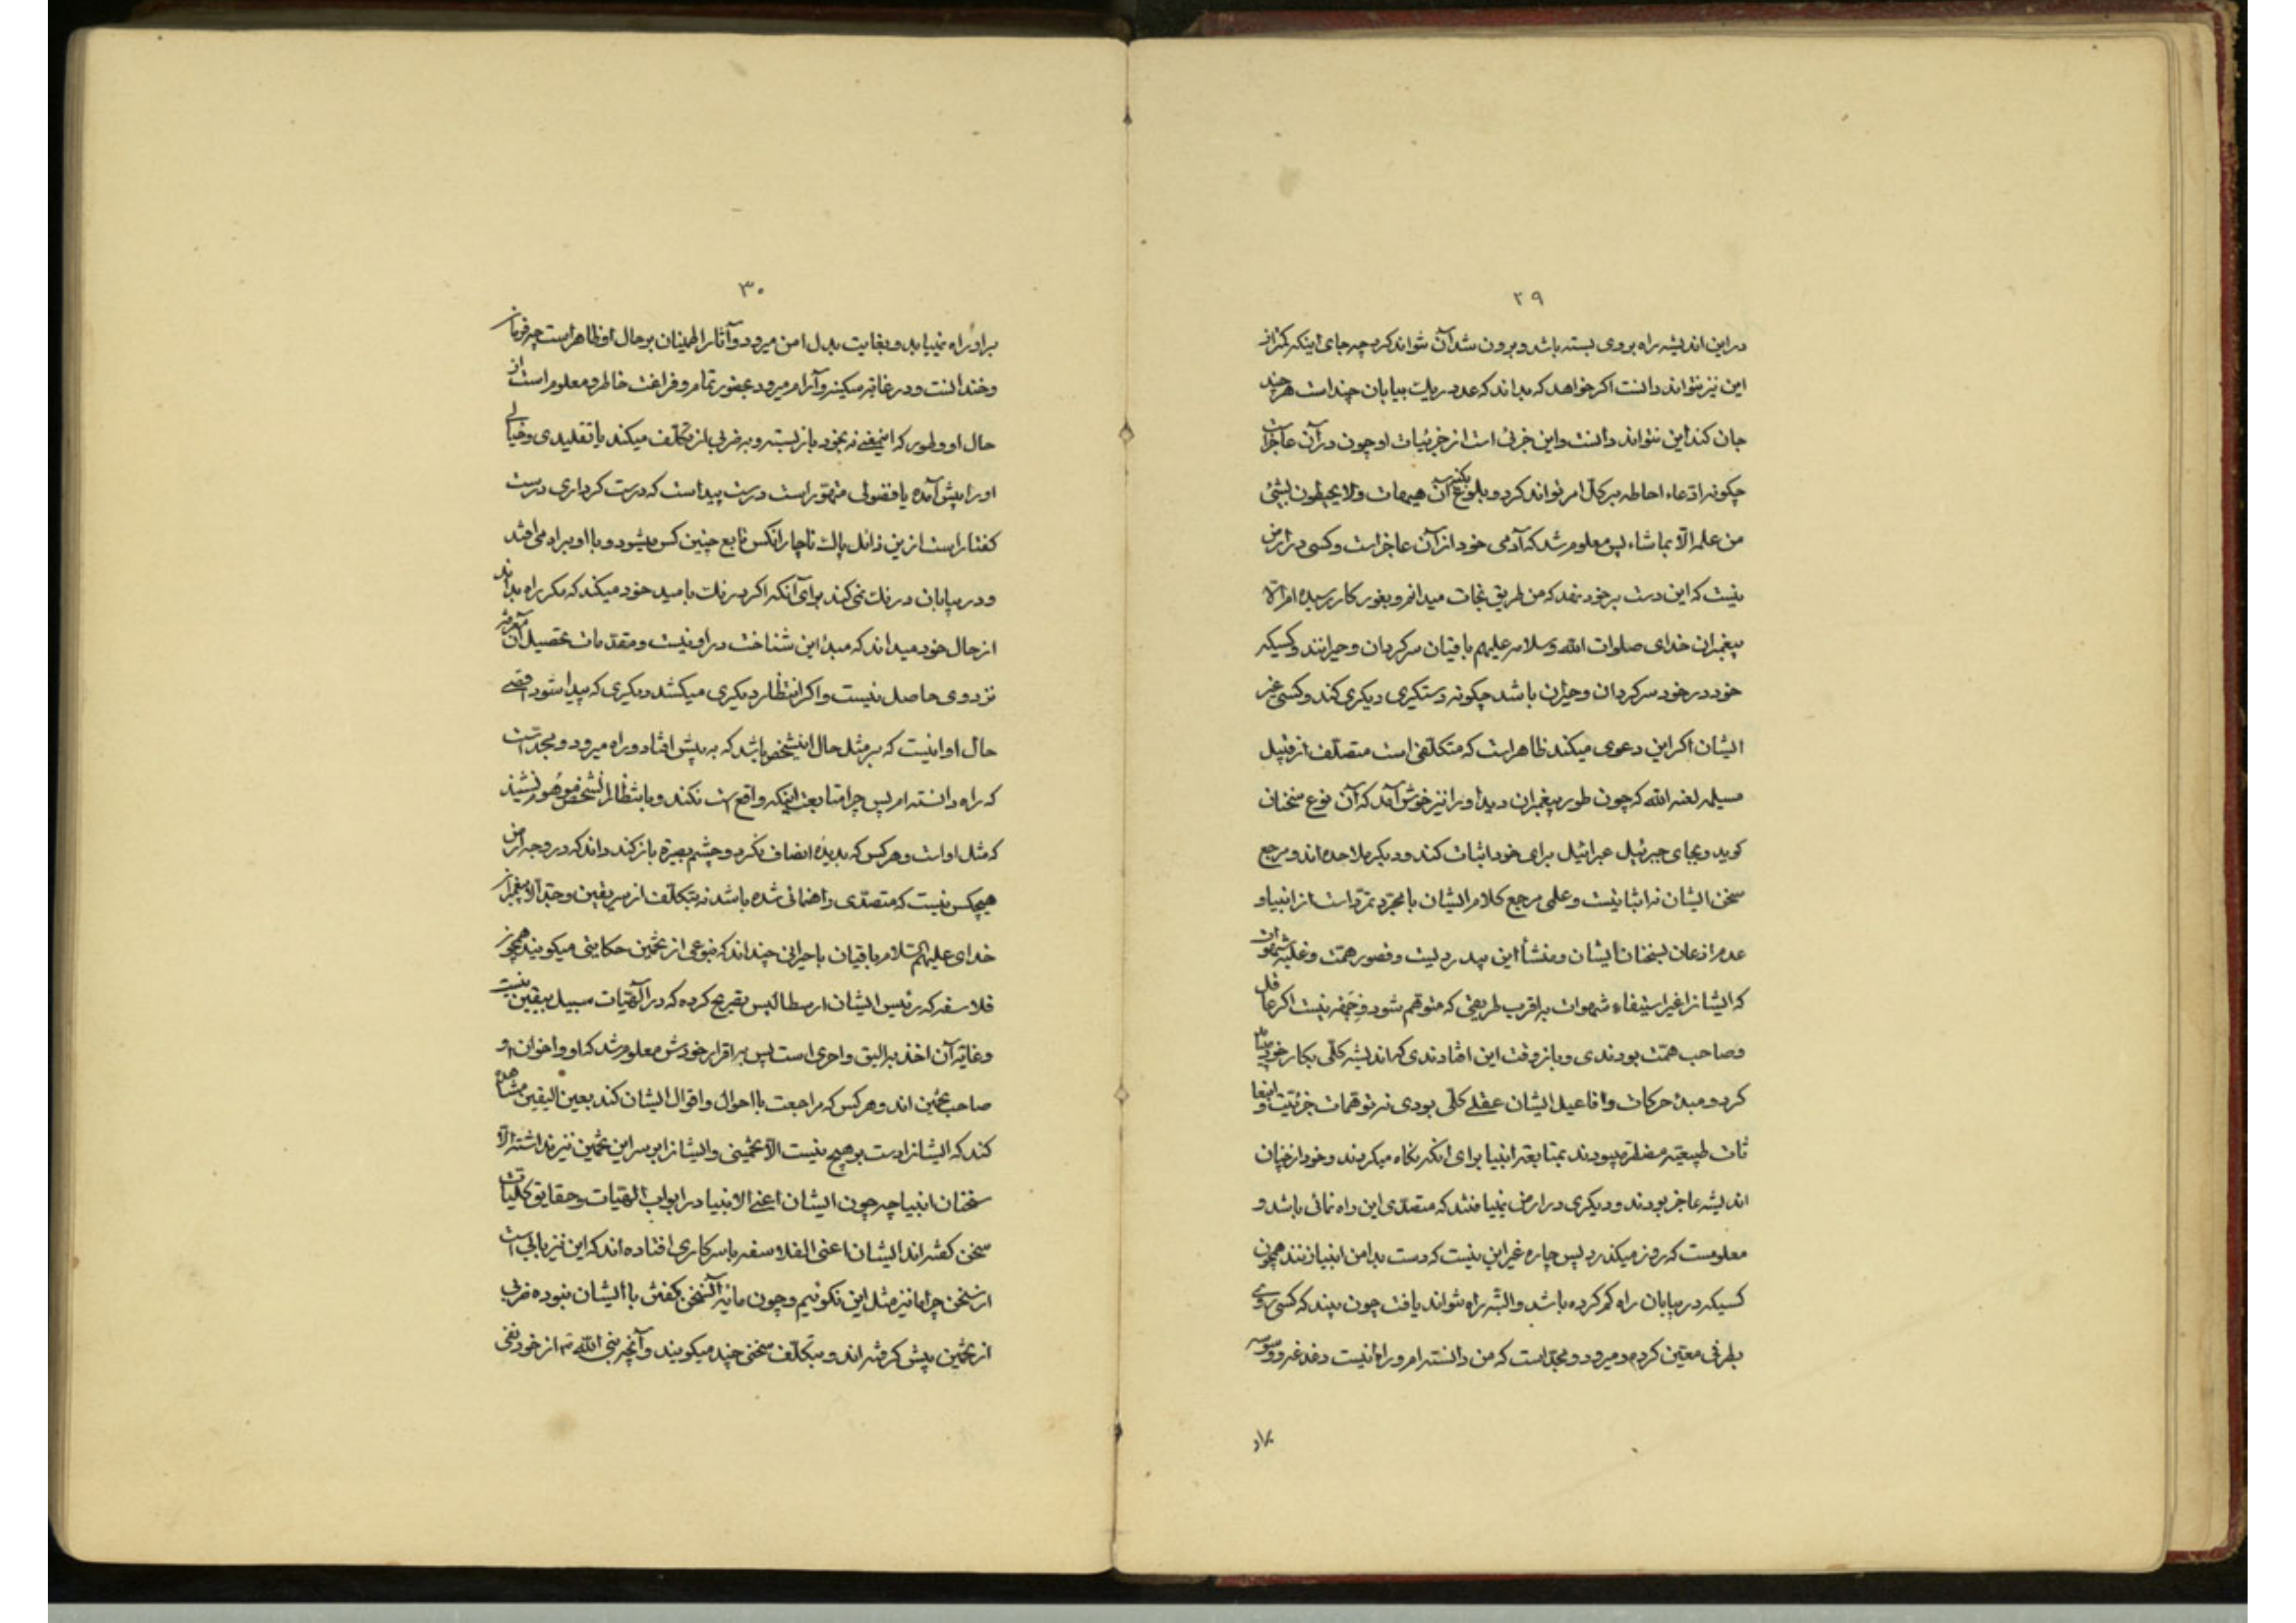 ۲۹
در این اندیشه راه بر وی بسته باشد و برون شد آن نتواند کرد چه جای اینکه کمتر از
این نیز نتواند دانست اگر خواهد که بداند که عدد ریگ بیابان چند است هر چند
جان کند این نتواند دانست و این جزئی است از جزئیات او چون در آن عاجز است
چگونه ادّعاء احاطه بر کلّ امر تواند کرد و بلوغ بکنه آن هیهات ولا یحیطون بشئ
من علمه الّا بماشاء پس معلوم شد که آدمی خود از آن عاجز است و کسی در ارض
نیست که این دست بر خود نهد که من طریق نجات میدانم و بغور کار رسیده ام الّا
پیغمبران خدای صلوات الله و سلامه علیهم باقیان سرگردان و حیرانند و کسیکه
خود در خود سرگردان و حیران باشد چگونه دستگیری دیگری کند و کسی غیر
ایشان اگر این دعوی میکند ظاهر است که متکلّفی است متصلّف از قبیل
مسیلمه لعنه الله که چون طور پیغمبران دید او را نیز خوش آمد که آن نوع سخنان
گوید و بجای جبرئیل عبرائیل برای خود اثبات کند و دیگر ملاحده اند و مرجع
سخن ایشان نه اثباتیست و علمی مرجع کلام ایشان با مجرّد تمرّد است از انبیا و
عدم اذعان بسخنان ایشان و منشأ این بیدردیست و قصور همّت و غلبه شهوات
که ایشانرا غیر استیفاء شهوات به اقرب طریقی که متوهّم شود وجهه نیست اگر عاقل
و صاحب همّت بودندی و باز وقت این افتادندی که اندیشه کلّی بکار خود
کرد و مبدٔ حرکات و افاعیل ایشان عقلی کلّی بودی نه توهّمات جزئیّت و انبعا
ثات طبیعیّه مضطرّ میبودند بمتابعة انبیا برای آنکه نگاه میکردند و خود از چنان
اندیشه عاجز بودند و دیگری در ارض نمییافتند که متصدّی این راه نمائی باشد و
معلومست که روز میگذرد پس چاره غیر این نیست که دست بدامن انبیا زنند همچون
کسیکه در بیابان راه گم کرده باشد و البتّه راه نتواند یافت چون بیند که کسی روی
بطرفی معیّن کرده و میرود و مجدّ است که من دانسته ام و راه اینست دغدغه و وسوسه
براو
۳۰
بر او راه نمییابد و بغایت بدل امن میرود و آثار اطمینان بر حال او ظاهر است چه فرومان
و خندانست و در غایة سکینه و آرام میرود بحضور تمام و فراغت خاطر و معلوم است از
حال او و طور که اینمعنی نه بخود باز بسته و به ضربی از تکلّف میکند یا تقلیدی و خیالی
او را پیش آمده یا فضولی متهوّر است درست پیداست که درست کرداری درست
گفتار است از این رذائل پاک ناچار آنکس تابع چنین کس میشود و با او براه می افتد
و در بیابان درنگ نمی کند برای آنکه اگر درنگ بامید خود میکند که مگر راه بداند
از حال خود میداند که مبدٔ این شناخت در او نیست و مقدّمات تحصیل آن
نزد وی حاصل نیست و اگر انتظار دیگری میکشد دیگری که پیدا شود اقصی
حال او اینست که بر مثل حال اینشخص باشد که به پیش افتاد و راه میرود و مجدّ است
که راه دانسته ام پس چرا متابعت اینکه واقع است نکند و بانتظار آنشخص موهوم نشیند
که مثل او است و هر کس که بدیدۀ انصاف نگرد و چشم بصیرة باز کند داند که در وجه ارض
هیچکس نیست که متصدّی راهنمائی شده باشد نه بتکلّف از سر یقین و جدّ الّا پیغمبران
خدای علیهم السّلام باقیان یا حیرانی چند اند که بنوعی از تخمین حکایتی میگویند همچون
فلاسفه که رئیس ایشان ارسطالیس تصریح کرده که در الٓهیّات سبیل بیقین نیست
و غایة آن اخذ به الیق و احری است پس به اقرار خودش معلوم شد که او و اخوان او
صاحب تخمین اند و هر کس که مراجعت با احوال و اقوال ایشان کند بعین الیقین مشاهده
کند که ایشانرا دست بر هیچ نیست الّا تخمینی و ایشانرا بر سر این تخمین نیز نداشته الّا
سخنان انبیا چه چون ایشان اعنی الانبیا در ابواب الهیّات و حقایق کلّیات
سخن گفته اند ایشان اعنی الفلاسفه باسر کاری افتاده اند که این نیز بابی است
از سخن چرا ما نیز مثل این نگوئیم و چون مایۀ آنسخن گفتن با ایشان نبوده ضربی
از تخمین پیش گرفته اند و بتکلّف سخنی چند میگویند و آنچه نبی الله ته از خود نفی